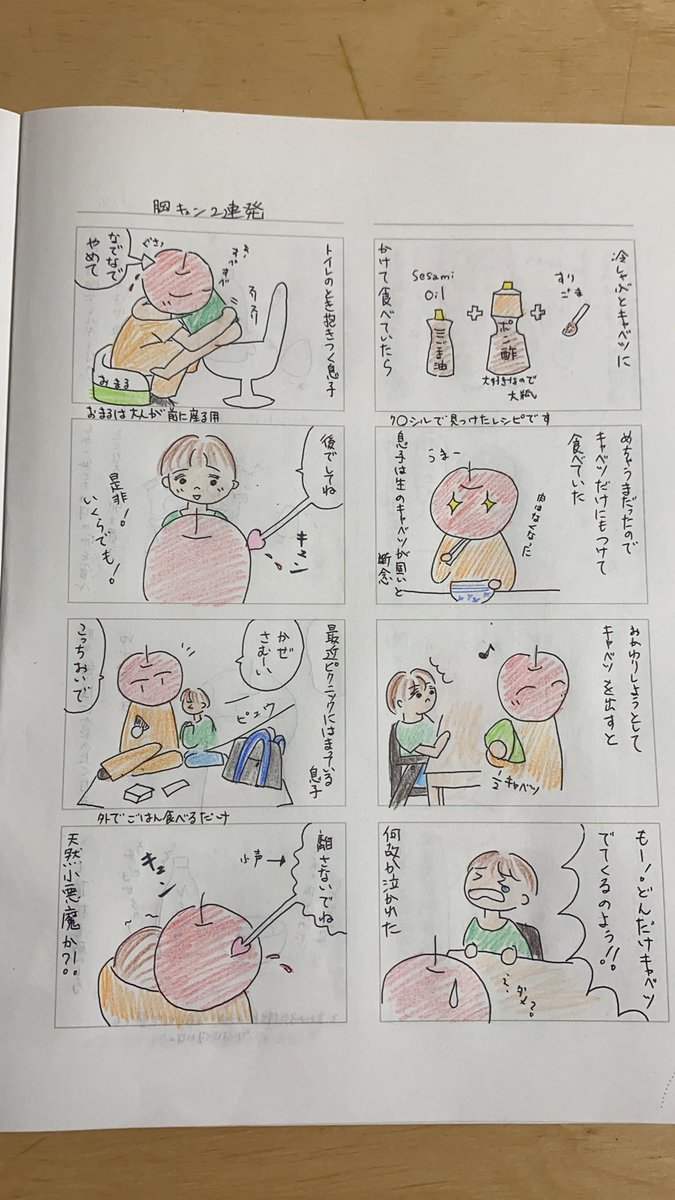 冷しゃぶとキャベツに
かけて食べていたら
Sesami
Oil
ごま油
ポン酢
すり
ごま
大好きなので
大瓶
ク〇シルで見つけたレシピです
めちゃうまだったので
キャベツだけにもつけて
食べていた
うまー
肉はなくなった
息子は生のキャベツが固いと
断念
おかわりしようとして
キャベツを出すと
♪
1/2キャベツ
もー!。どんだけキャベツ
でてくるのよう!!
何故か泣かれた
え、ダメ?。
胸キュン2連発
トイレのとき抱きつく息子
なでなで
やめて
ぐさっ
すべ
すべ
おまる
おまるは大人が前に座る用
後でしてね
キュン
是非!。
いくらでも!。
最近ピクニックにはまっている
息子
かぜ
さむーい
こっちおいで
ピュウ
外でごはん食べるだけ
離さないでね
小声→
キュン
天然小悪魔か?!。